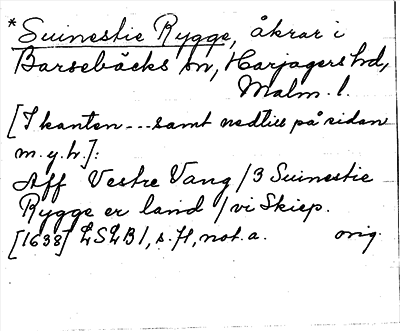 *Suinestie Rygge, åkrar i
Barsebäcks sn, Harjagers hd,
Malm. l.
[I kanten --- samt nedtill på sidan
m.y.h.]:
Aff Vestre Vang / 3 Suinestie
Rygge er land / vi Skiep.
[1638] LSLB1, s. 71, not. a. orig.